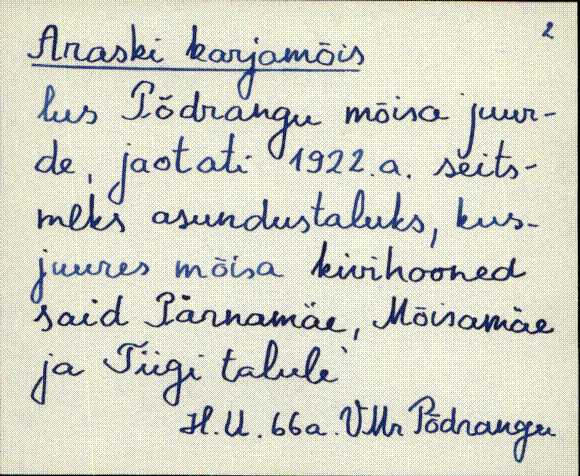 2
Araski karjamõis
lus Põdrangu mõisa juur-
de, jaotati 1922.a. seits-
meks asundustaluks, kus-
juures mõisa kivihooned
said Pärnamäe, Mõisamäe
ja Tiigi talule
H.U. 66a. VMr Põdrangu